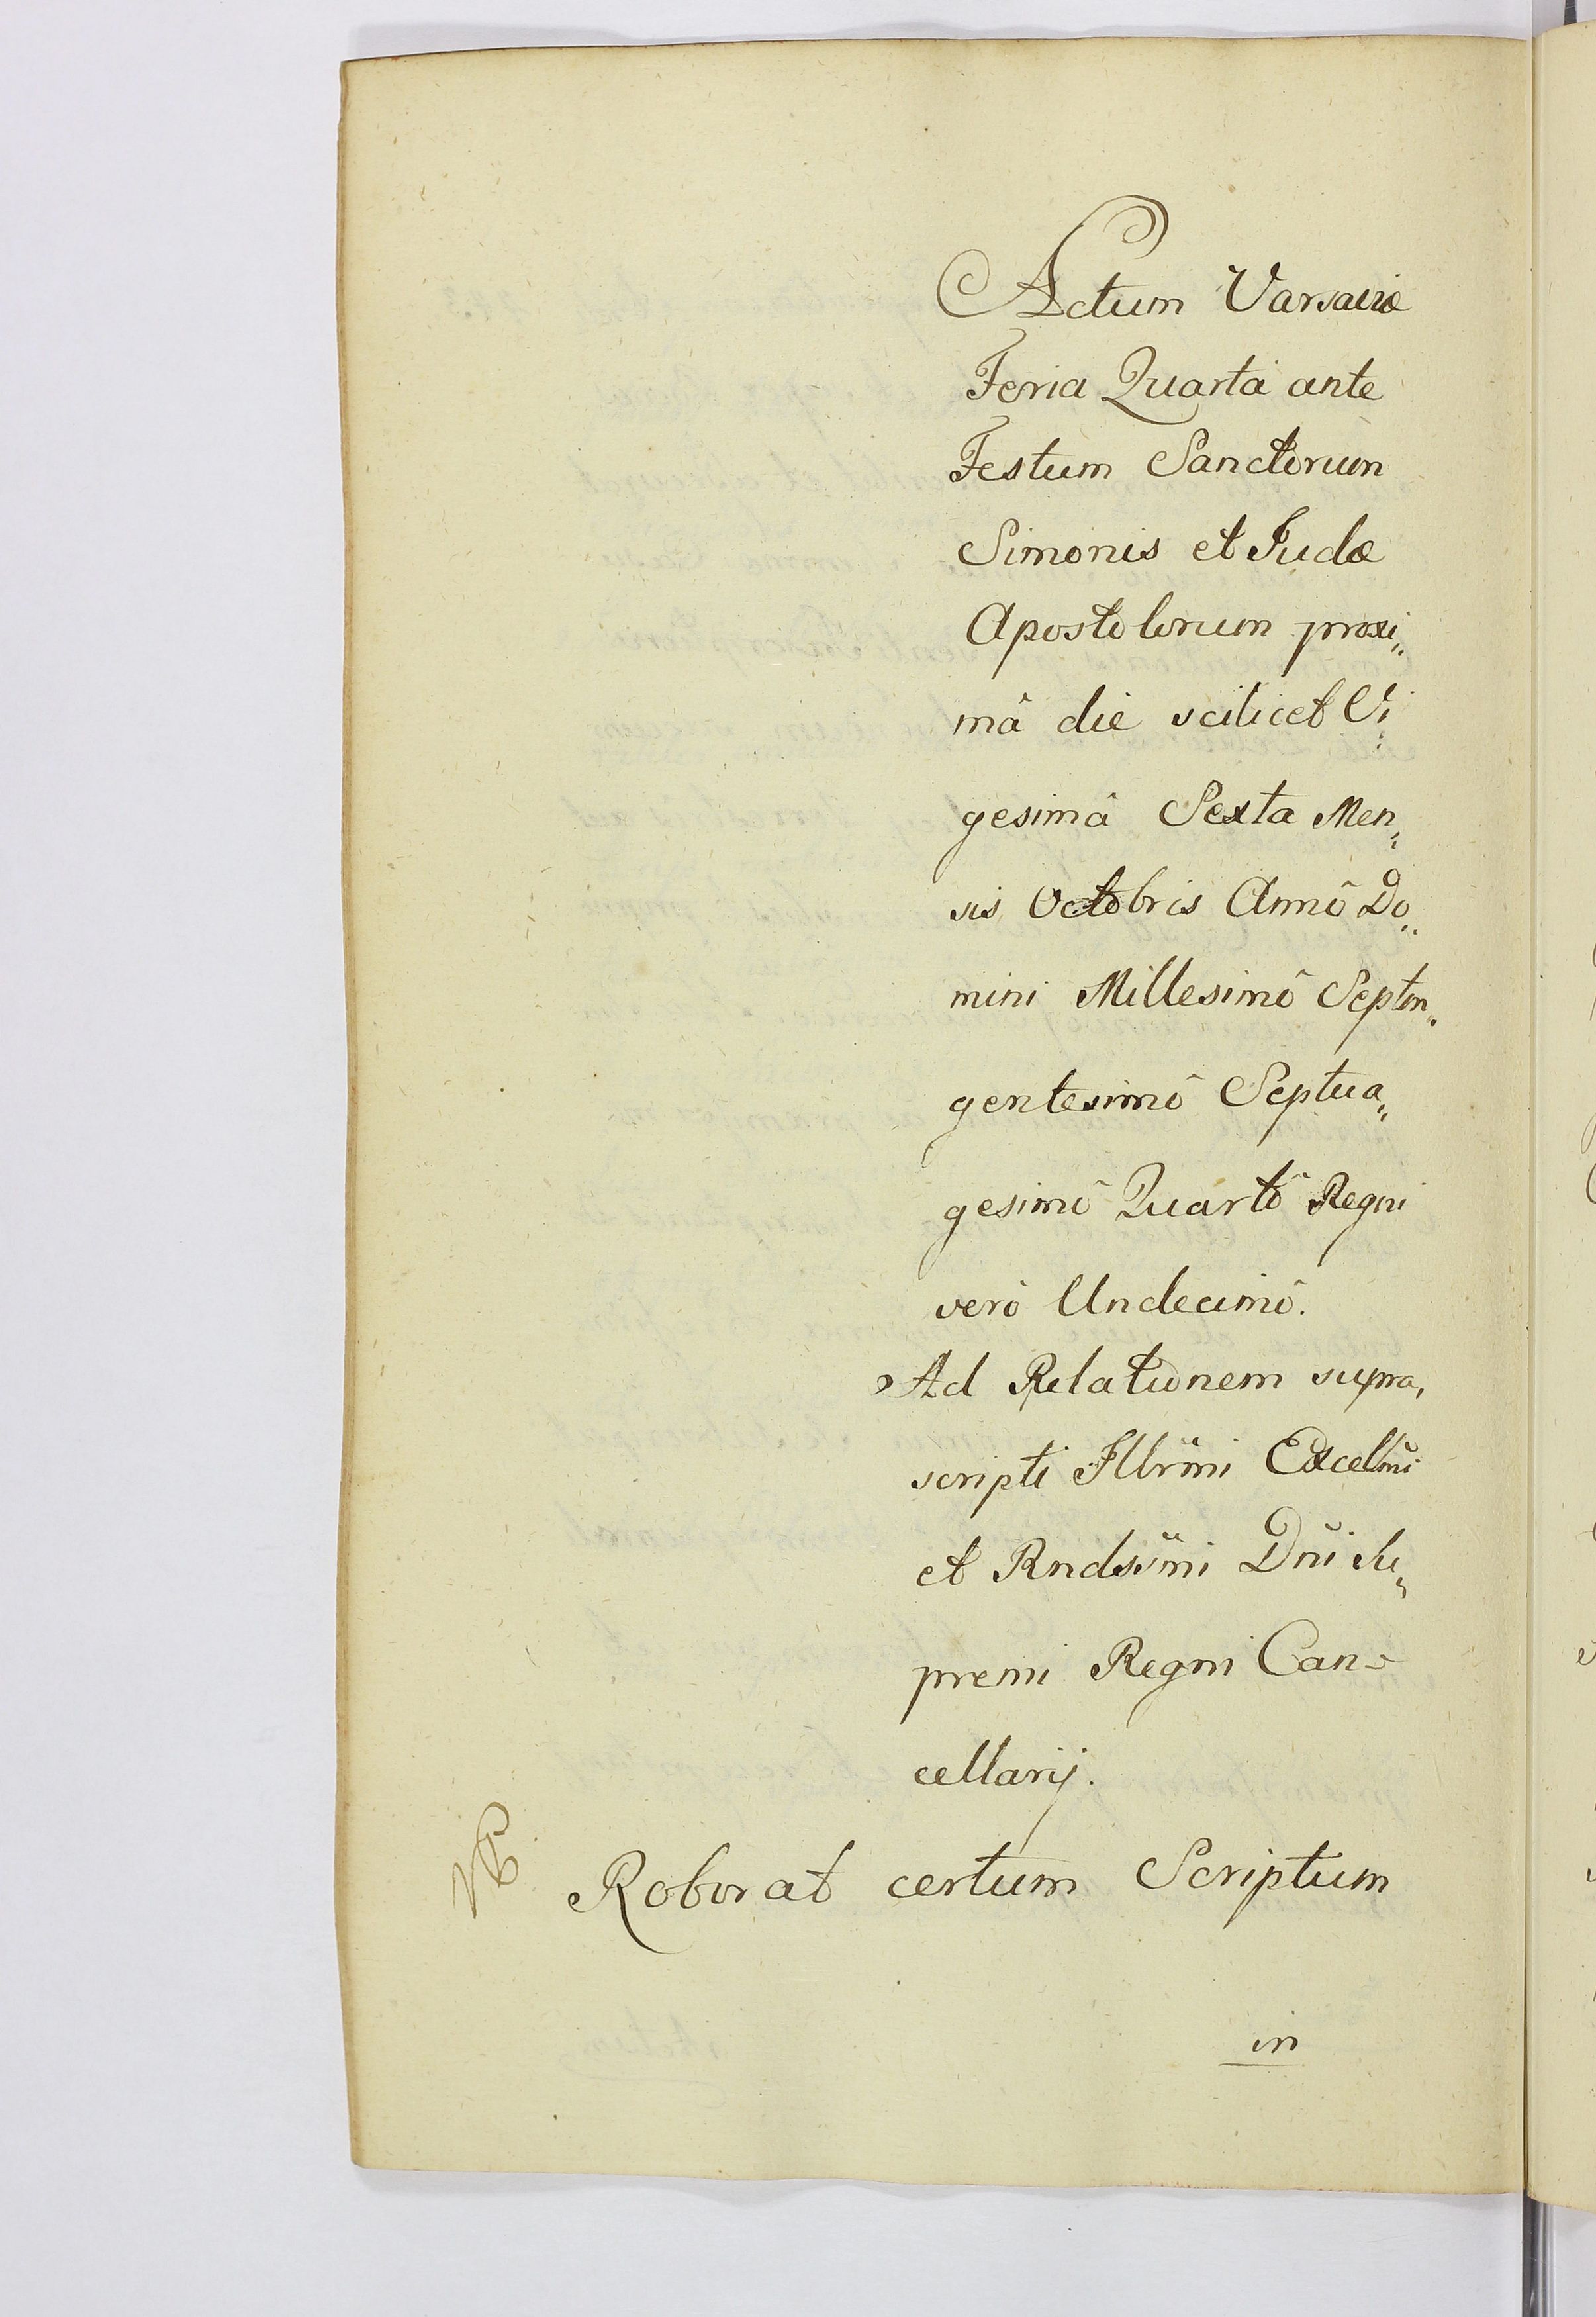 Actum Varsaviæ
Feria Quarta ante
Festum Sanctorum
Simonis et Judæ
Apostolorum proxi„
mâ die scilicet Vi„
gesimâ Sexta Men„
sis Octobris Annô Do„
mini Millesimô Septin„
gentesimô Septua„
gesimô Quartô Regni
verô Undecimô.
Ad Relationem supra„
scripti Illrm̃i Excellm̃i
et Rndssm̃i Dñi Su„
premi Regni Can-
cellarij.
NB. Roborat certum Scriptum
in